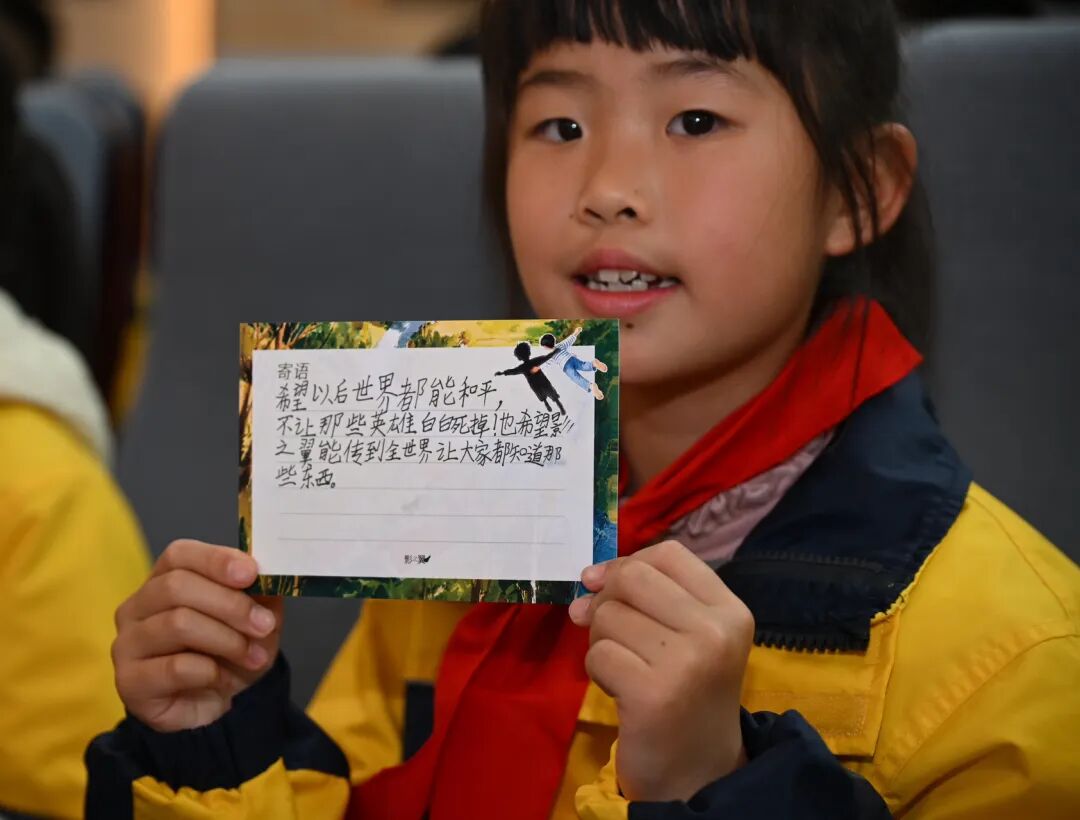 寄语
希望以后世界都能和平,
不让那些英雄白白死掉!也希望影
之翼能传到全世界让大家都知道那
些东西。
影之翼